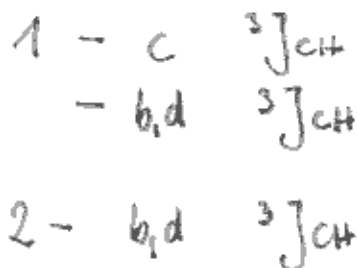 1 - c ³J CH
- b,d ³J CH
2 - b,d ³J CH